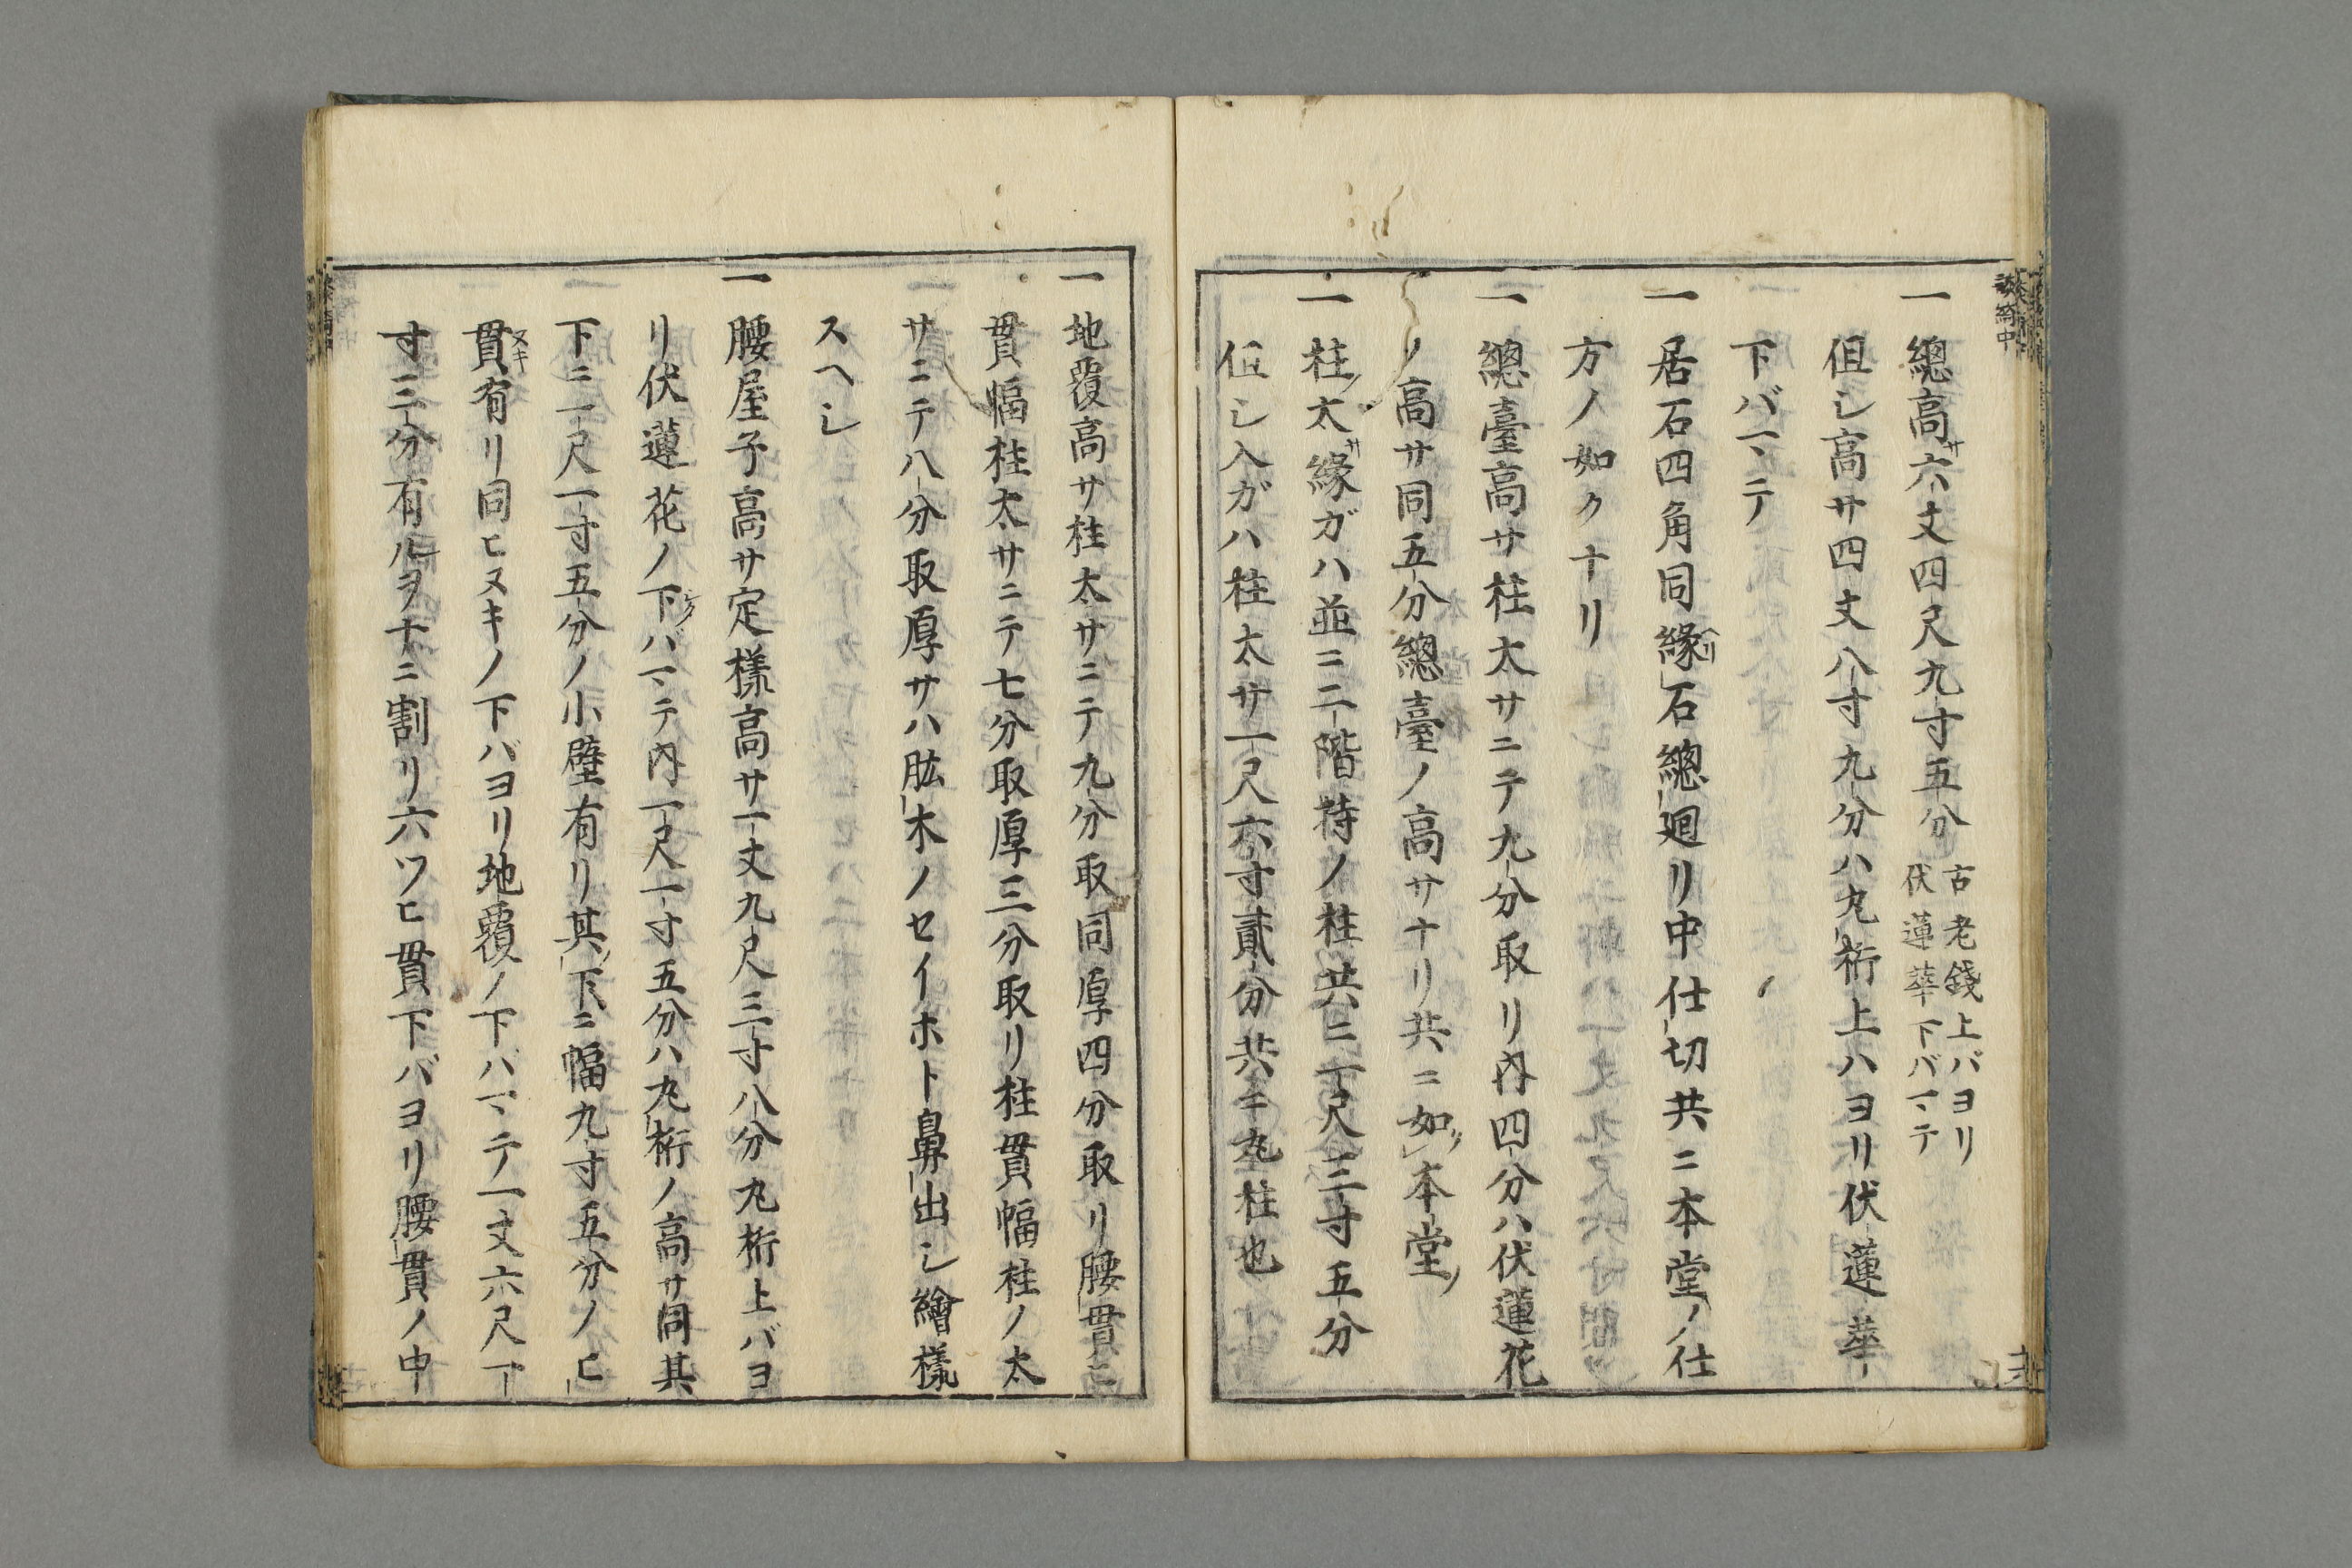 一 總高サ六丈四尺九寸五分 古老錢上バヨリ
伏蓮華下バマテ
但シ高サ四丈八寸九分ハ丸桁上ハヨリ伏蓮華
下バマテ
一 居石四角同縁石總廻リ中仕切共ニ本堂ノ仕
方ノ如クナリ
一 總臺高サ柱太サニテ九分取リ内四分ハ伏蓮花
ノ高サ同五分總臺ノ高サナリ共ニ如本堂ノ
一 柱ノ太サ縁ガハ並ニ二階持ノ柱共ニ一尺三寸五分
但シ入ガハ柱太サ一尺六寸貳分共ニ丸柱也
一 地覆高サ柱太サニテ九分取同厚四分取リ腰貫ニ
貫幅柱太サニテ七分取厚三分取リ柱貫幅柱ノ太
サニテ八分取厚サハ肱木ノセイホト鼻出シ繪様
スヘシ
一 腰屋子高サ定様高サ一丈九尺三寸八分丸桁上バヨ
リ伏蓮花ノ下バマテ内一尺一寸五分ハ丸桁ノ高サ同其
下ニ一尺一寸五分ノ小壁有リ其ノ下ニ幅九寸五分ノヒ
貫有リ同ヒヌキノ下バヨリ地覆ノ下バマテノ一丈六尺一
寸三分有ルヲ十ニ割リ六ツヒ貫下バヨリ腰貫ノ中